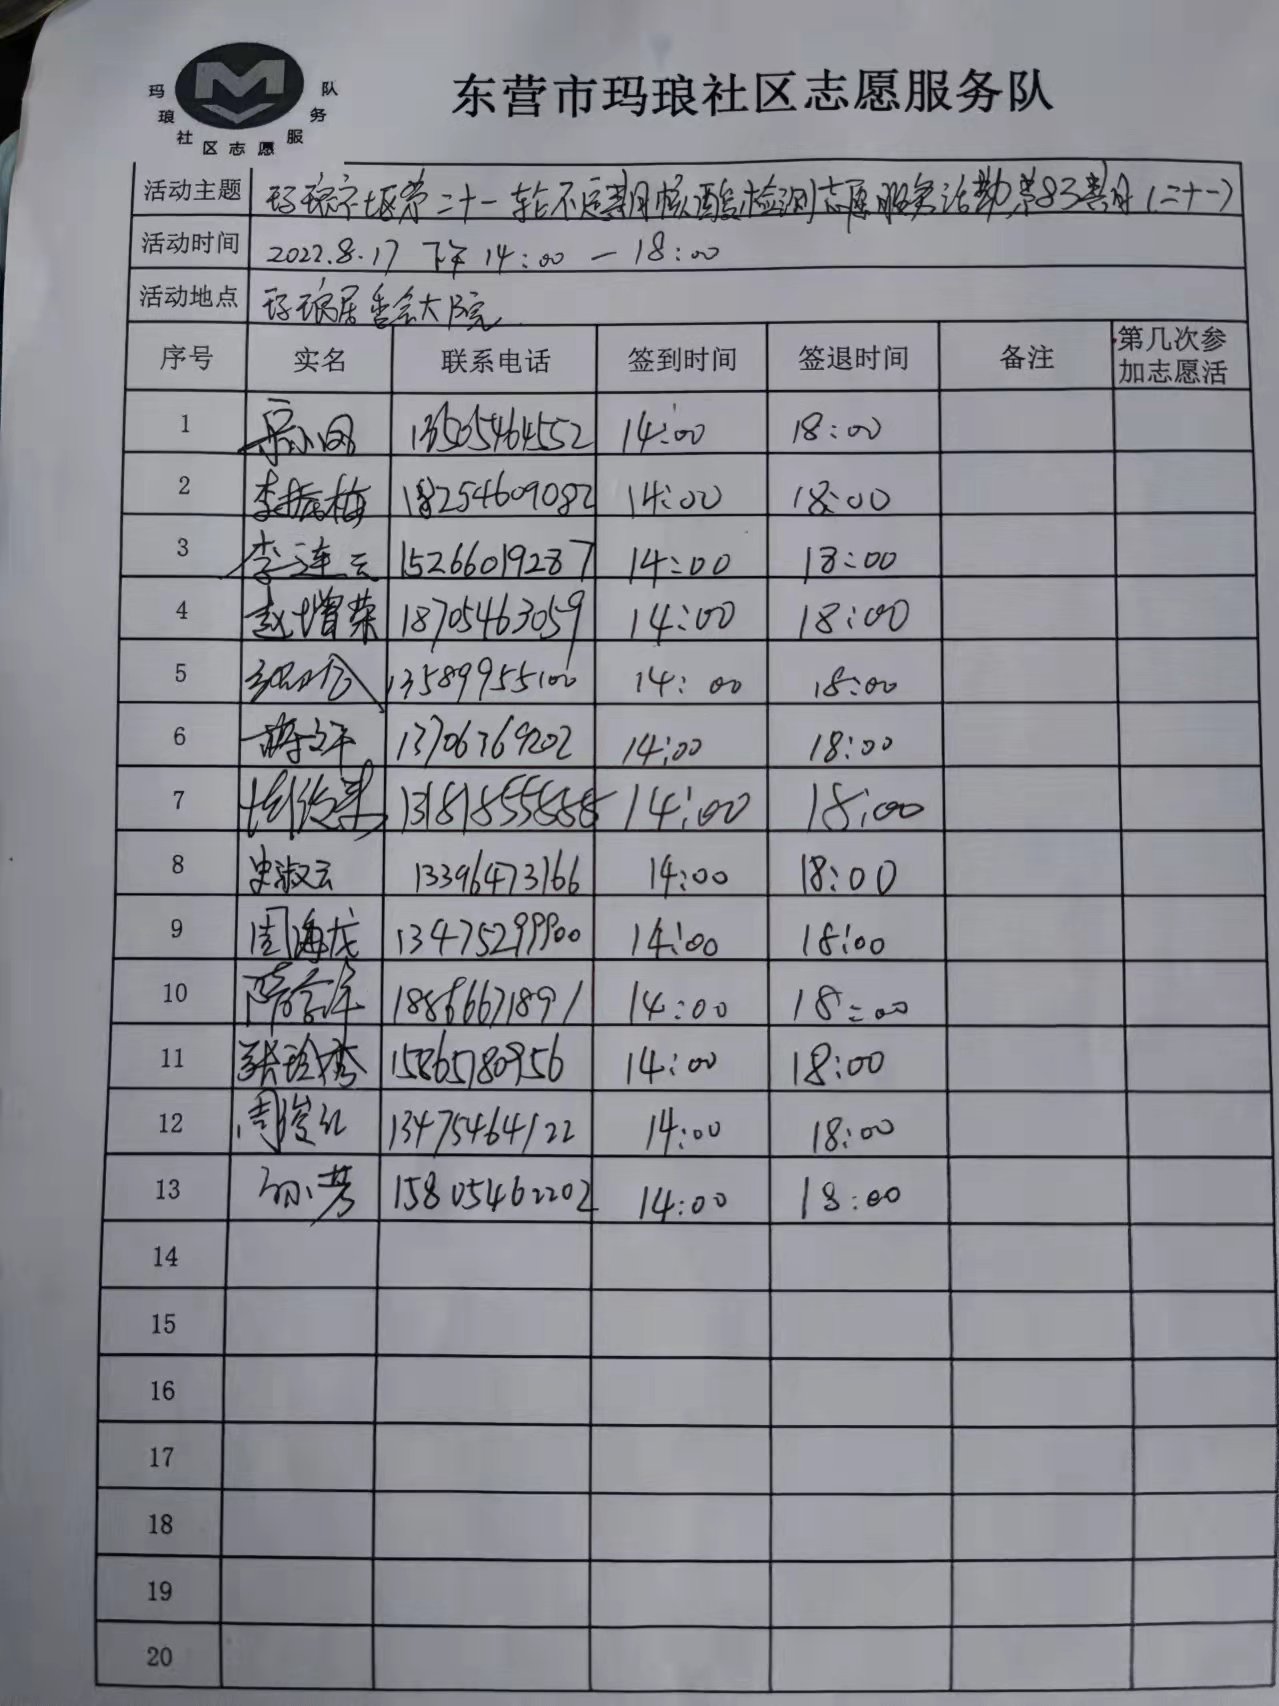 玛琅社区志愿服务队
东营市玛琅社区志愿服务队
活动主题 玛琅社区第二十一轮不定期核酸检测志愿服务活动第83期(二十一)
活动时间 2022.8.17 下午14:00—18:00
活动地点 玛琅居委会大院
序号 实名 联系电话 签到时间 签退时间 备注 第几次参
加志愿活
1 13505464552 14:00 18:00
2 李振梅 18254609082 14:00 18:00
3 李连云 15266019287 14:00 18:00
4 赵增荣 18705463059 14:00 18:00
5 13589955100 14:00 18:00
6 蒋文平 13706369202 14:00 18:00
7 14:00 18:00
8 史淑云 13396473166 14:00 18:00
9 周海龙 13475299900 14:00 18:00
10 隋学华 18866671891 14:00 18:00
11 张玲秀 15865780956 14:00 18:00
12 周俊红 13475464122 14:00 18:00
13 孙芳 15805462202 14:00 18:00
14
15
16
17
18
19
20